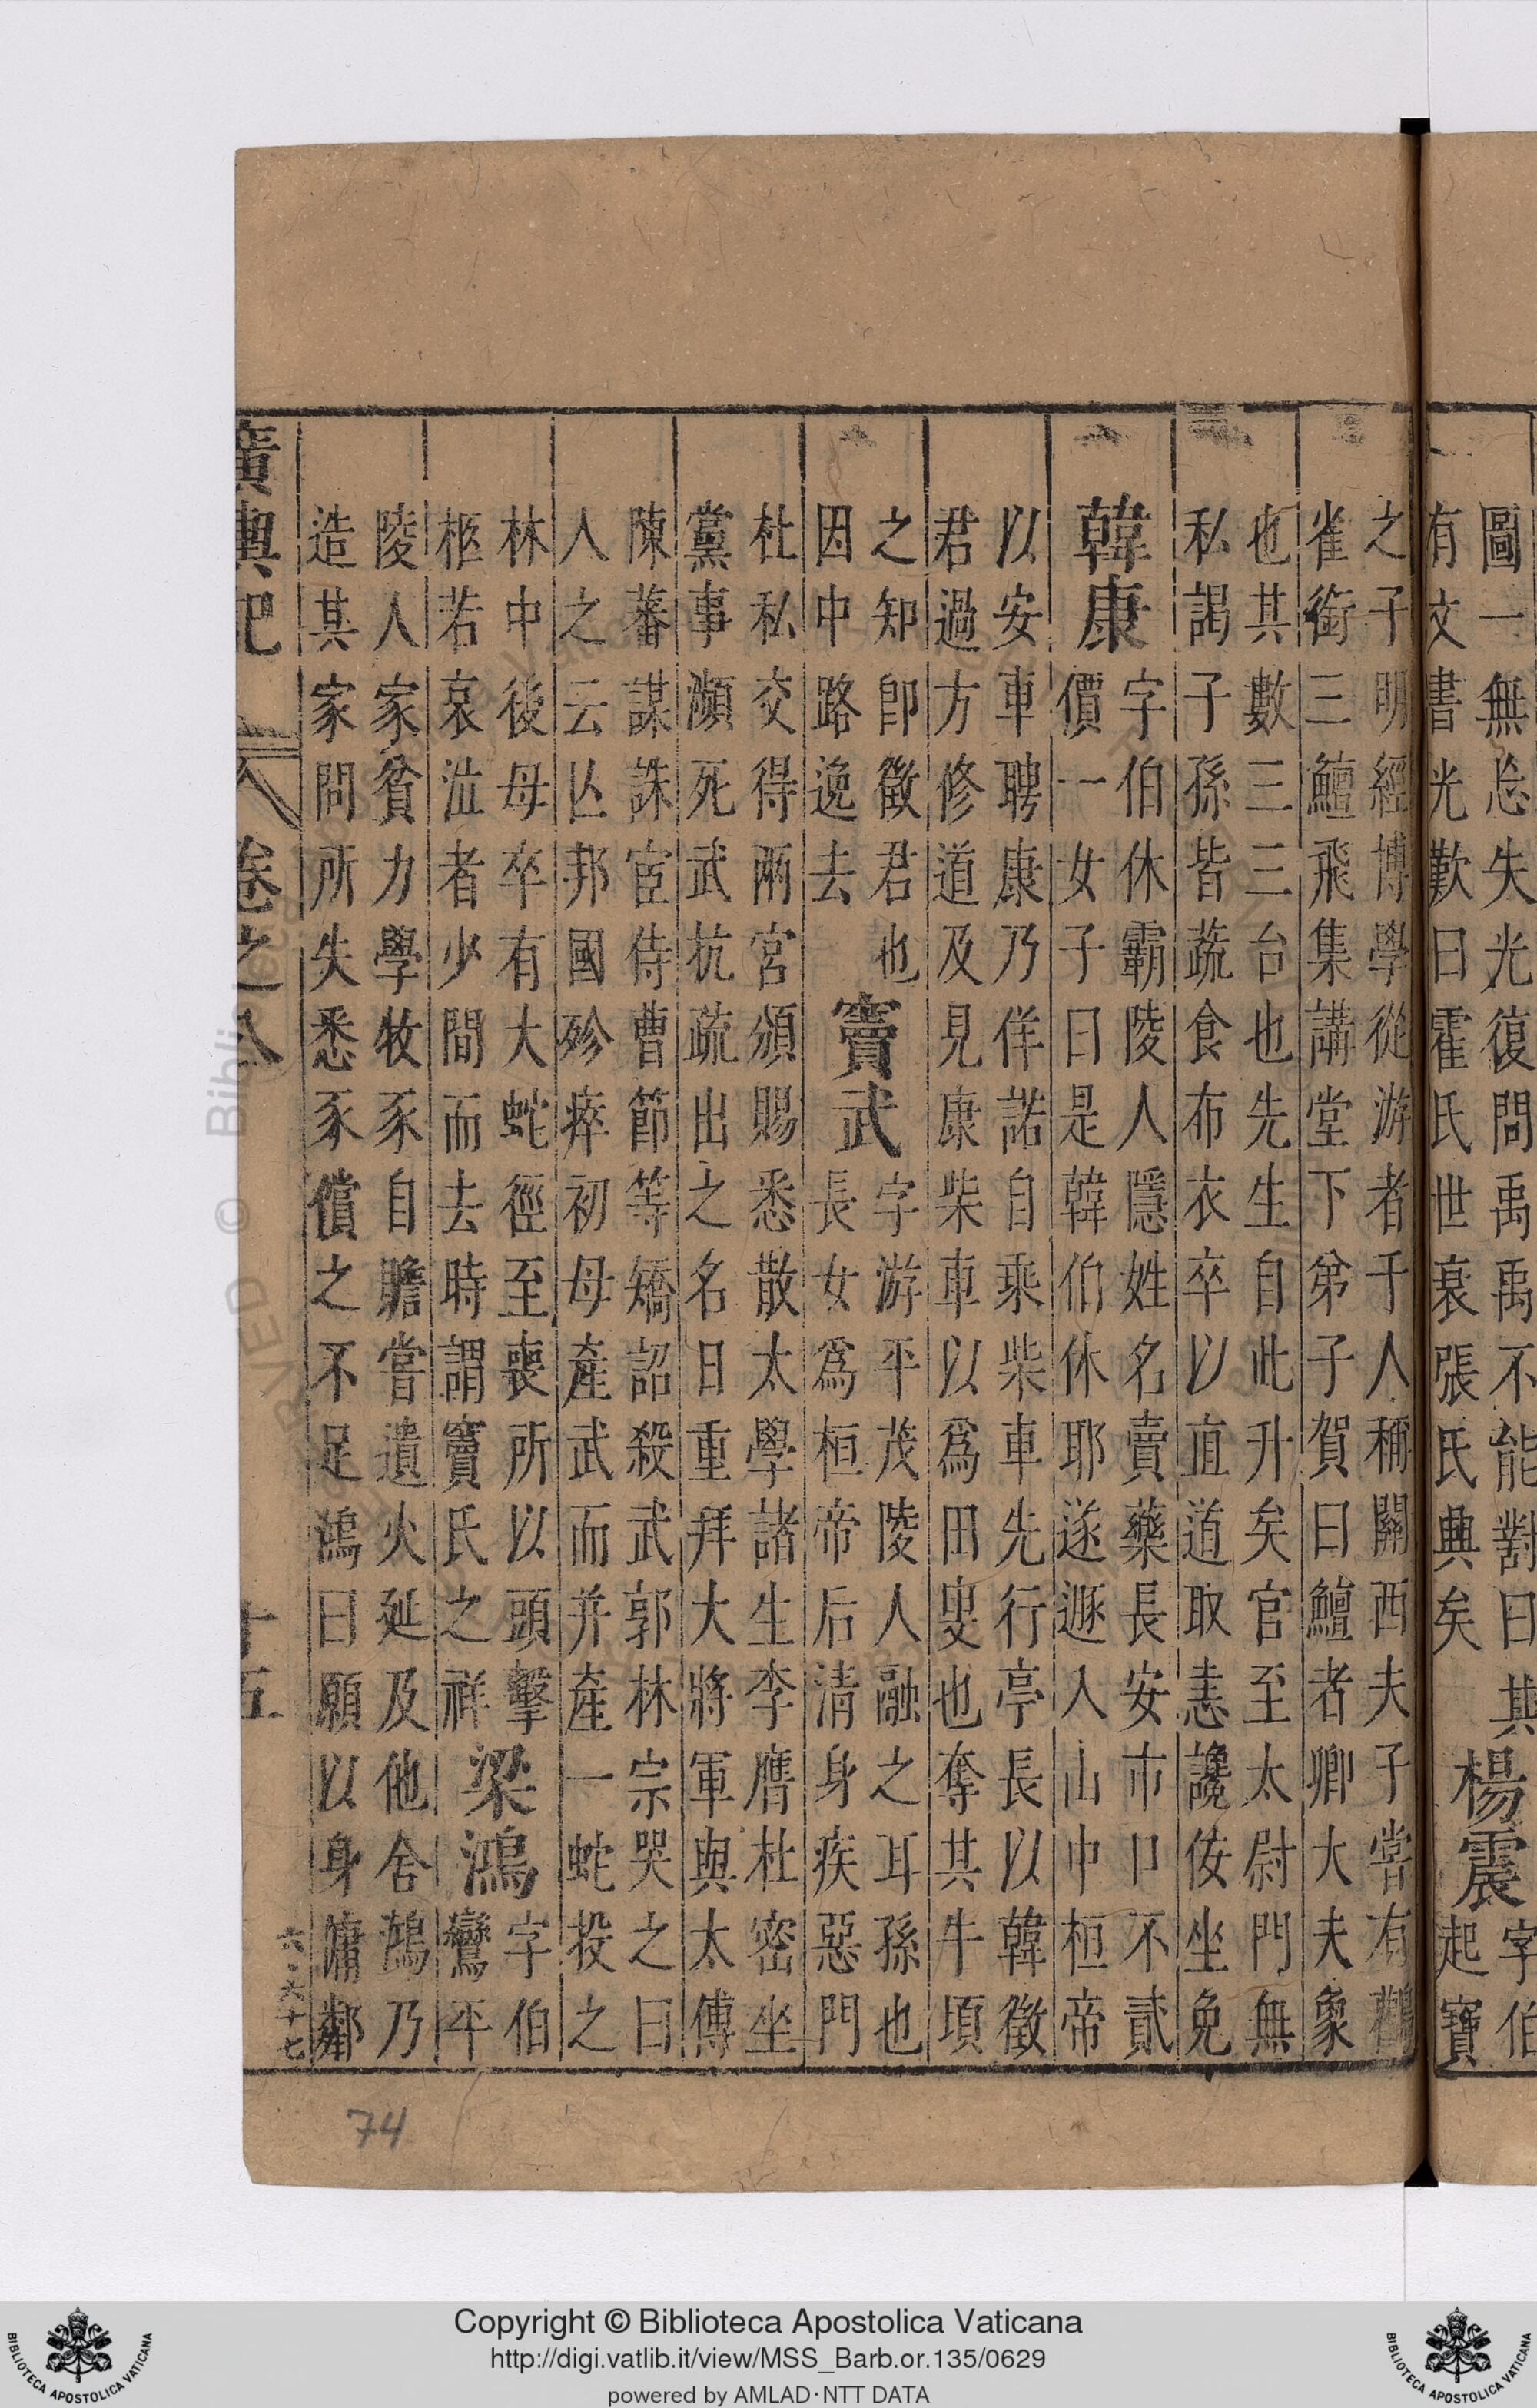 圖一無忘失光復問禹禹不能對曰其
有文書光歎曰霍氏世衰張氏興矣
楊震
字伯
起寶
之子明經博學從游者千人稱關西夫子嘗有鸛
雀銜三鱣飛集講堂下弟子賀曰鱣者卿大夫象
也其數三三台也先生自此升矣官至太尉門無
私謁子孫皆蔬食布衣卒以直道取恚讒佞坐免
韓康
字伯休霸陵人隱姓名賣藥長安市口不貳
價一女子曰是韓伯休耶遂遯入山中桓帝
以安車聘康乃佯諾自乘柴車先行亭長以韓徵
君過方修道及見康柴車以為田叟也奪其牛頃
之知即徵君也
因中路逸去
竇武
字游平茂陵人融之耳孫也
長女為桓帝后清身疾惡門
杜私交得兩宮頒賜悉散太學諸生李膺杜密坐
黨事瀕死武抗疏出之名日重拜大將軍與太傅
陳蕃謀誅宦侍曹節等矯詔殺武郭林宗哭之曰
人之云亾邦國殄瘁初母產武而并產一蛇投之
林中後母卒有大蛇徑至喪所以頭擊
柩若哀泣者少間而去時謂竇氏之祥
梁鴻
字伯
鸞平
陵人家貧力學牧豕自贍嘗遺火延及他舍鴻乃
造其家問所失悉豕償之不足鴻曰願以身傭鄰
廣輿記
卷之八
十五
六·六十七
74
Copyright © Biblioteca Apostolica Vaticana
http://digi.vatlib.it/view/MSS_Barb.or.135/0629
powered by AMLAD·NTT DATA
BIBLIOTECA APOSTOLICA VATICANA
BIBLIOTECA APOSTOLICA VATICANA